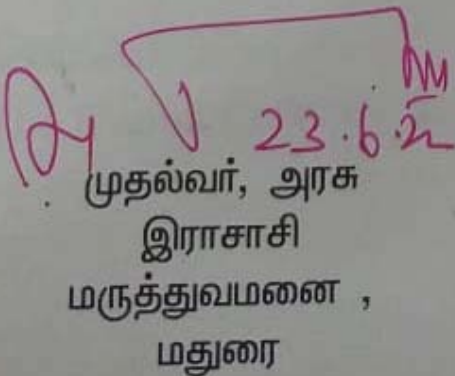 23.6.22
முதல்வர், அரசு
இராசாசி
மருத்துவமனை ,
மதுரை